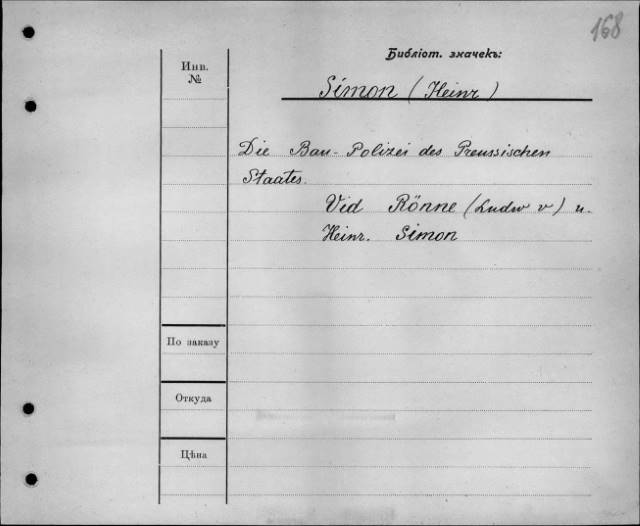 168
Библіот. значекъ:
Инв.
№
Simon (Heinr)
Die Bau-Polizei des Preussischen
Staates.
Vid Rönne (Ludw v) u.
Heinr. Simon
По заказу
Откуда
Цѣна